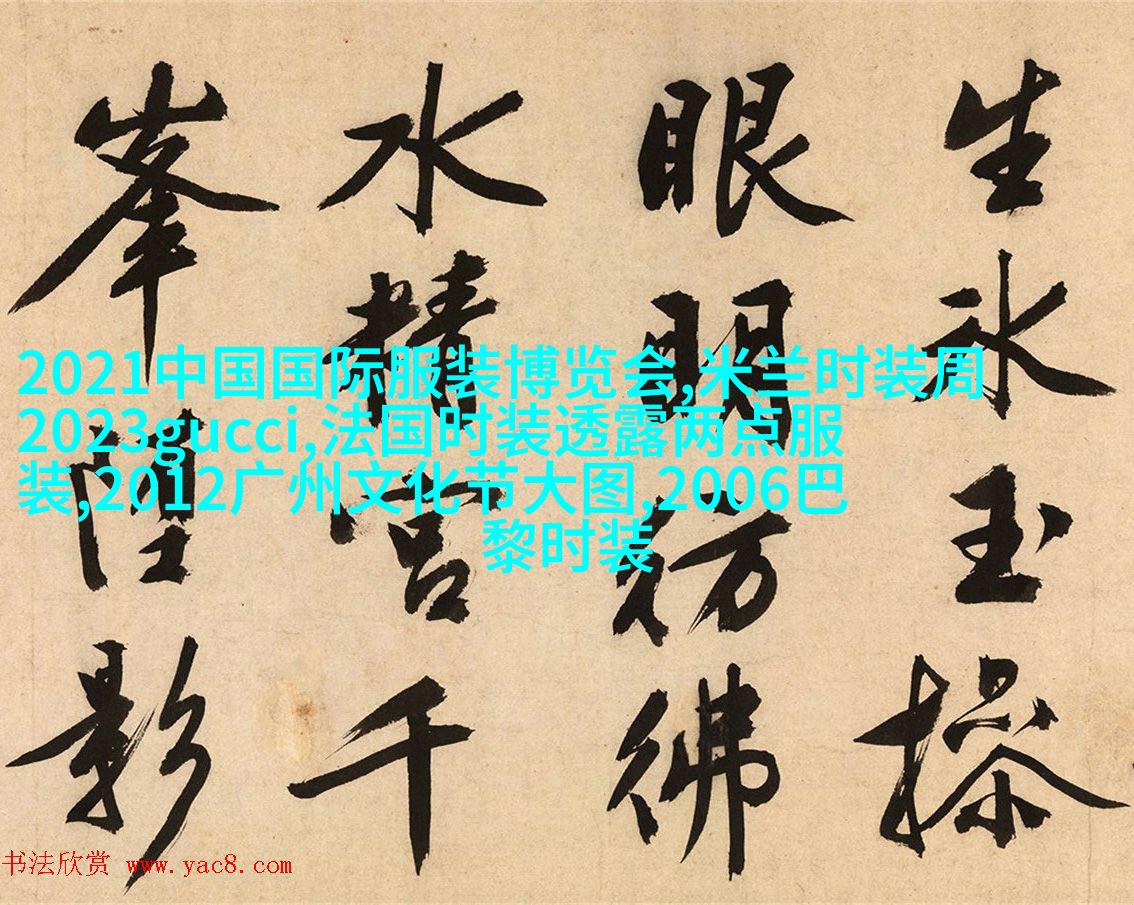 生氷玉操
眼明彷彿
水精宫千
峯陞影
2021中国国际服装博览会,米兰时装周
2023gucci,法国时装透露两点服
装,2012广州文化节大图,2006巴
黎时装
书法欣赏 www.yac8.com